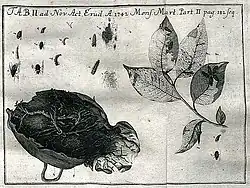 TAB II ad Nov. Act. Erud. A. 1742 Mens. Mart. Part. II pag.